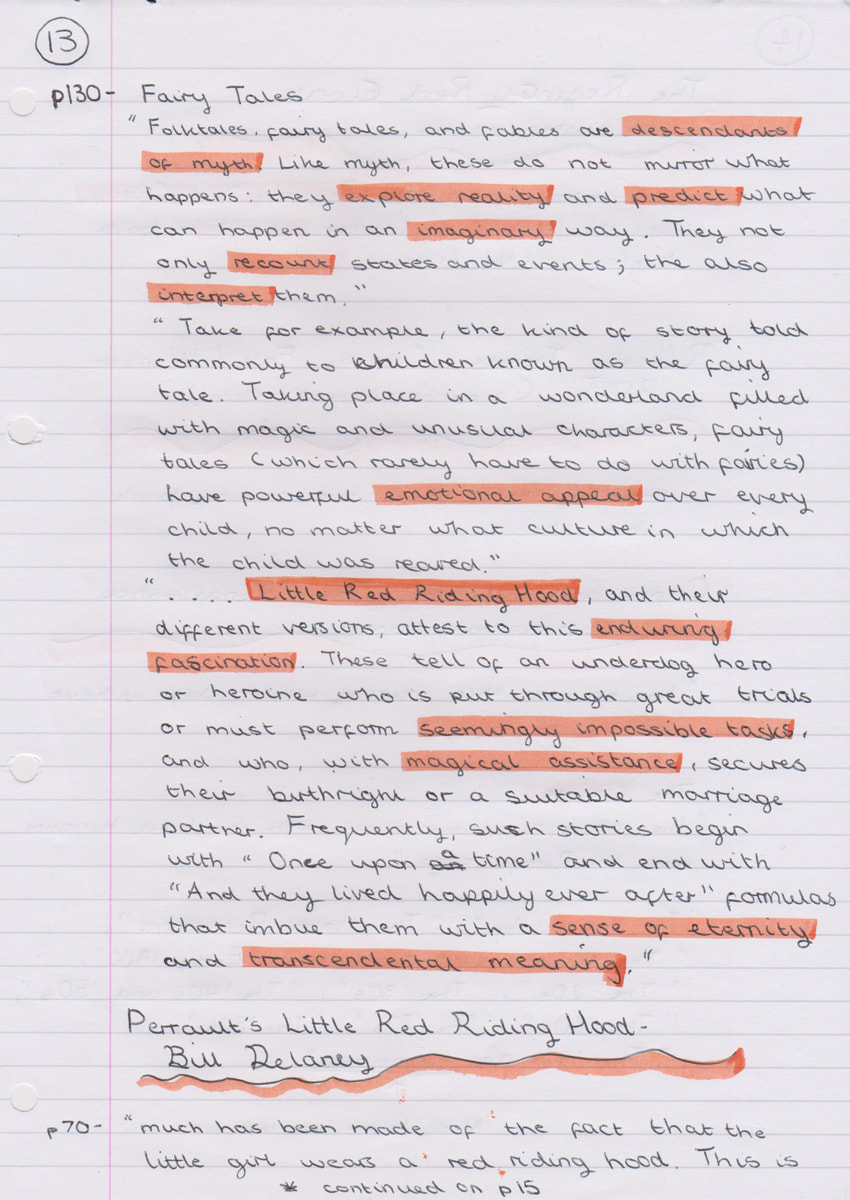 13
p130 - Fairy Tales
"Folktales, fairy tales, and fables are descendants
of myth. Like myth, these do not mirror what
happens: they explore reality and predict what
can happen in an imaginary way. They not
only recount states and events; the also
interpret them."
"Take for example, the kind of story told
commonly to children known as the fairy
tale. Taking place in a wonderland filled
with magic and unusual characters, fairy
tales (which rarely have to do with fairies)
have powerful emotional appeal over every
child, no matter what culture in which
the child was reared."
".... Little Red Riding Hood, and their
different versions, attest to this enduring
fascination. These tell of an underdog hero
or heroine who is put through great trials
or must perform seemingly impossible tasks,
and who, with magical assistance, secures
their birthright or a suitable marriage
partner. Frequently, such stories begin
with "Once upon a time" and end with
"And they lived happily ever after" formulas
that imbue them with a sense of eternity
and transcendental meaning."
Perrault's Little Red Riding Hood -
Bill Delaney
p70 - "much has been made of the fact that the
little girl wears a red riding hood. This is
* continued on p15